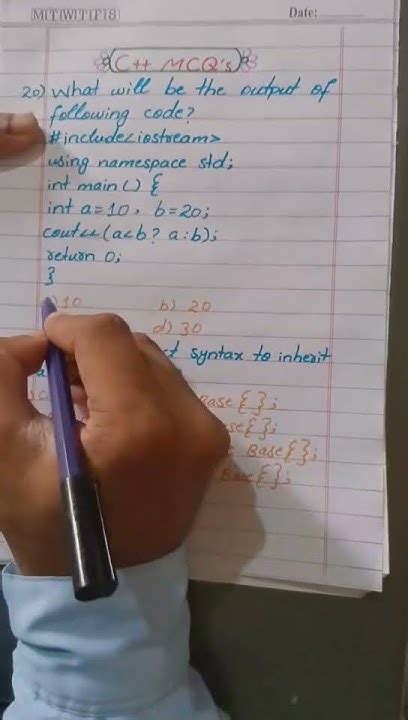 M T W T F S Date:
C++ MCQ's
20) What will be the output of
following code?
#include<iostream>
using namespace std;
int main() {
int a=10, b=20;
cout<<(a<b? a:b);
return 0;
}
10 b) 20
d) 30
syntax to inherit
Base{};
{};
Base{};
Base{};